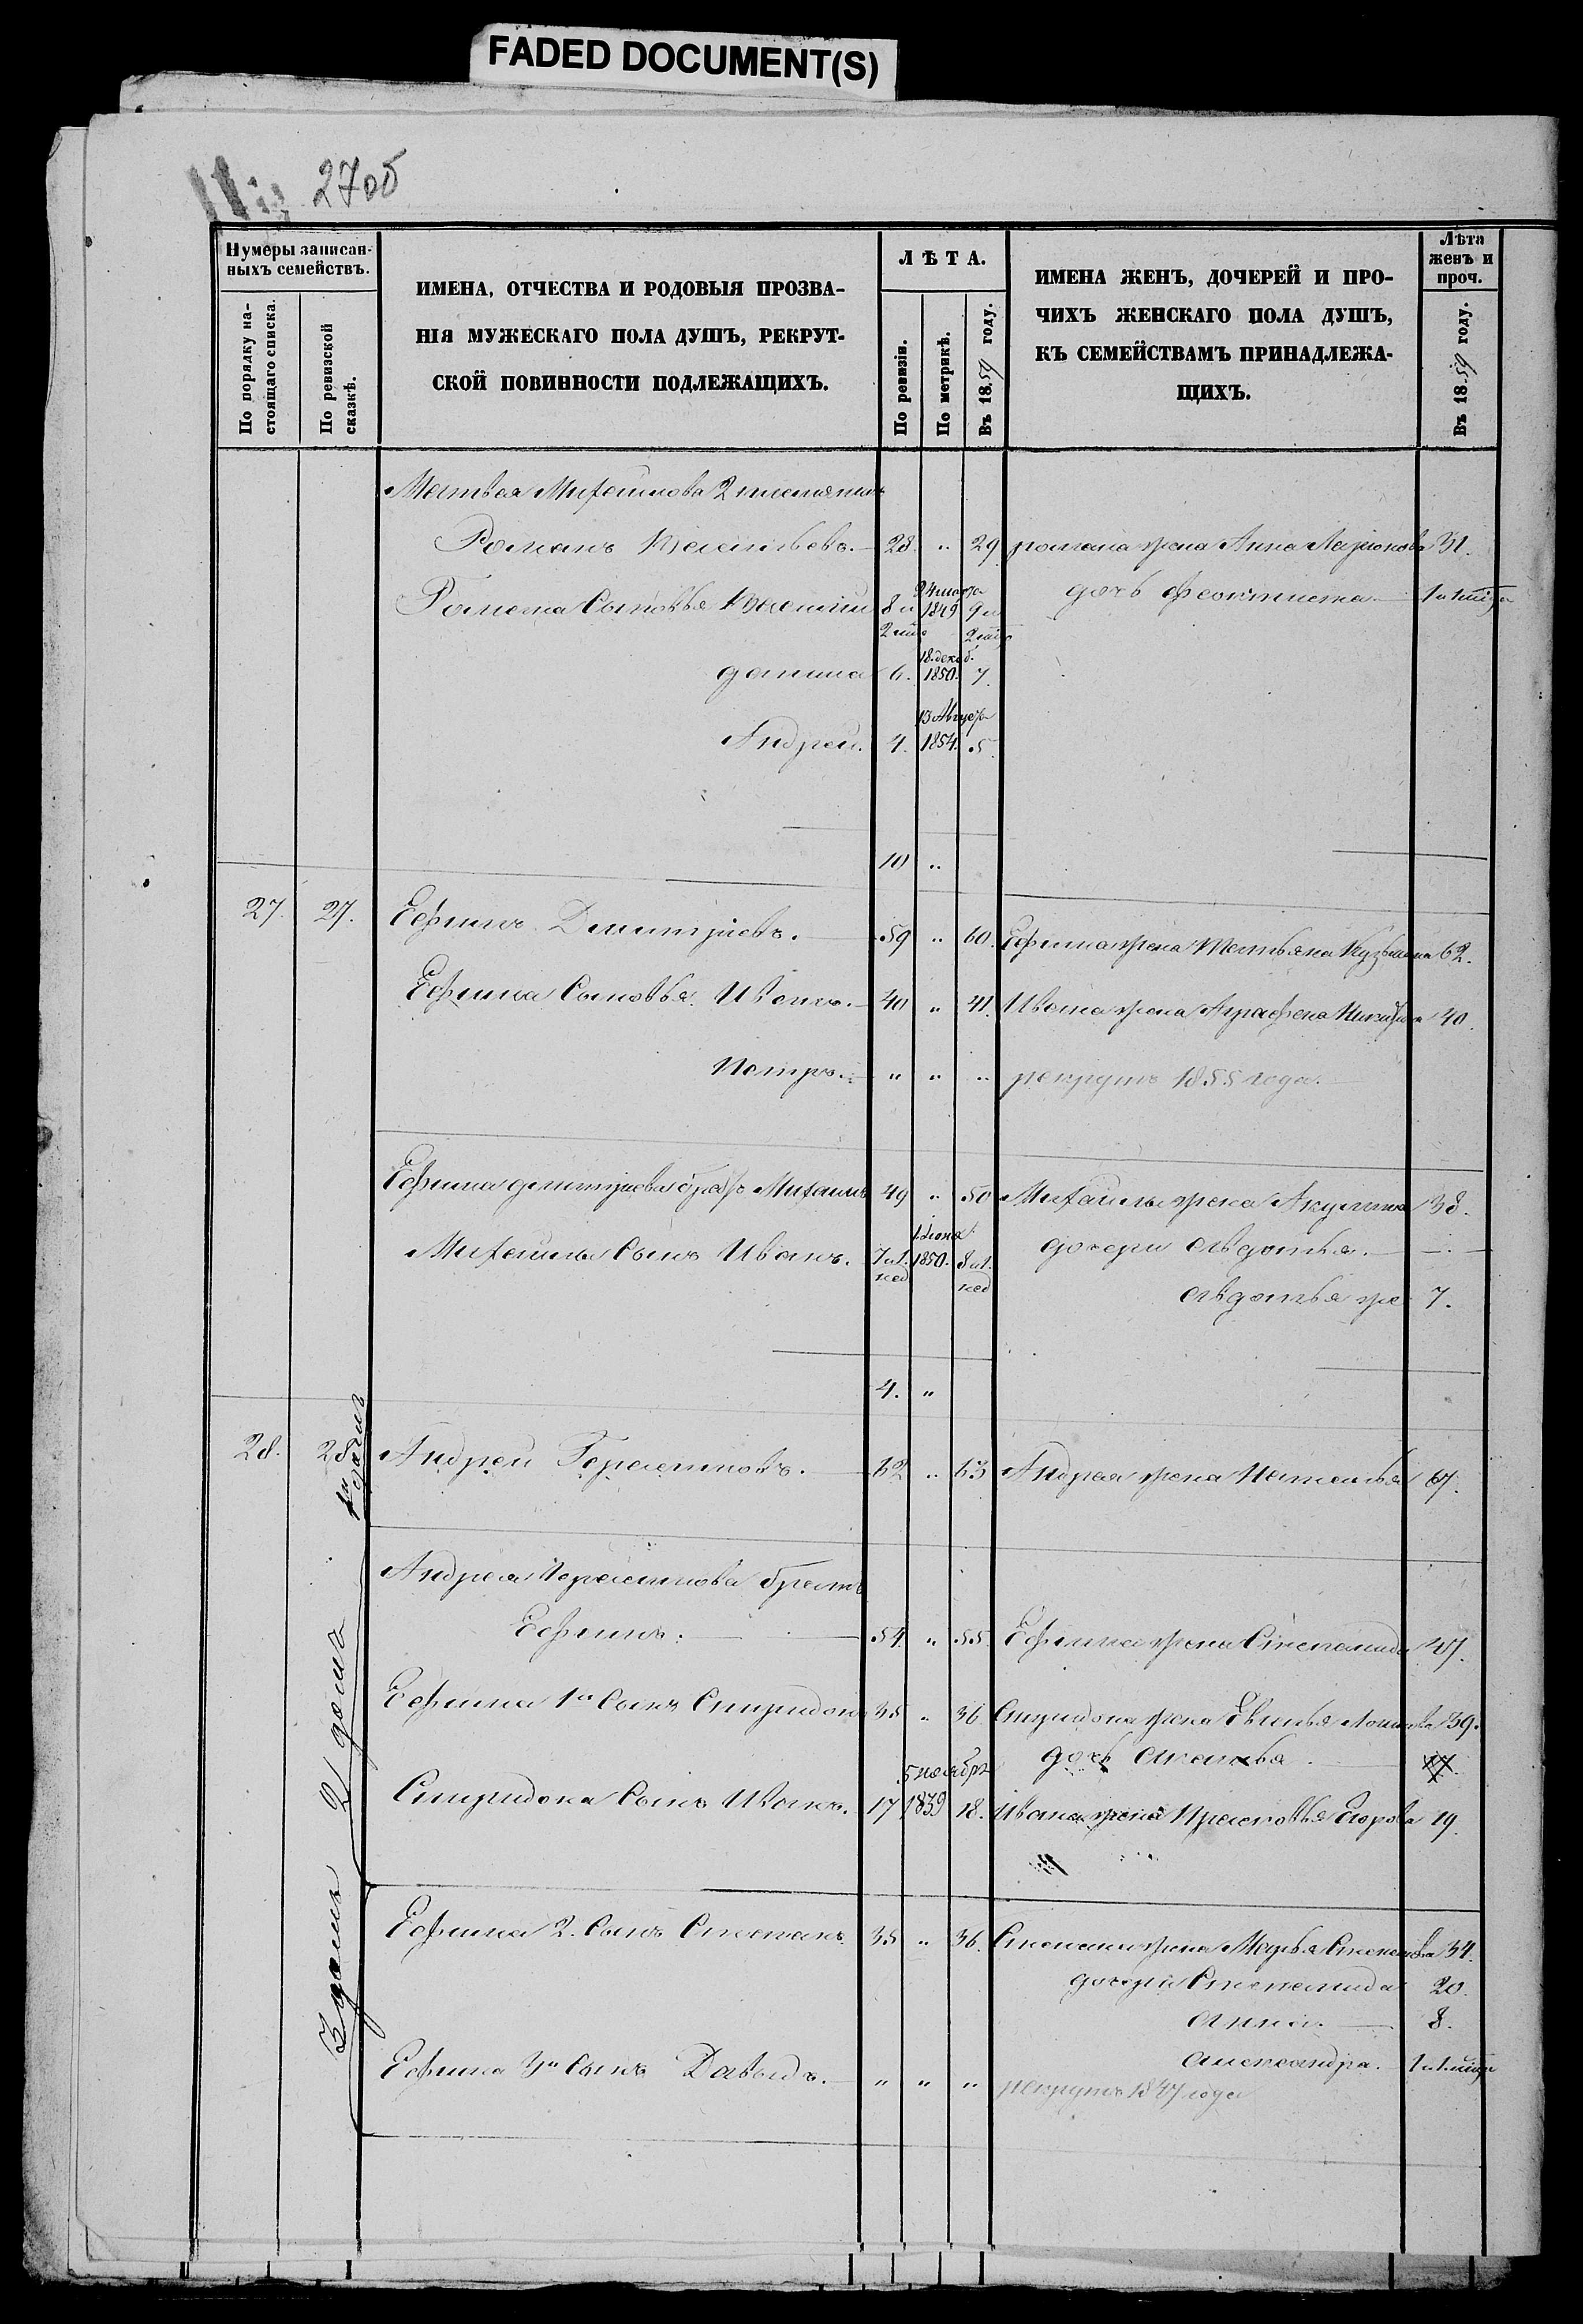 FADED DOCUMENT(S)
2705
Нумеры записан-
ныхъ семействъ.
По порядку на-
стоящаго списка.
По ревизской
сказкѣ.
ИМЕНА, ОТЧЕСТВА И РОДОВЫЯ ПРОЗВА-
НІЯ МУЖЕСКАГО ПОЛА ДУШЪ, РЕКРУТ-
СКОЙ ПОВИННОСТИ ПОДЛЕЖАЩИХЪ.
ЛѢТА.
По ревизіи.
По метрикѣ.
Въ 1859 году.
ИМЕНА ЖЕНЪ, ДОЧЕРЕЙ И ПРО-
ЧИХЪ ЖЕНСКАГО ПОЛА ДУШЪ,
КЪ СЕМЕЙСТВАМЪ ПРИНАДЛЕЖА-
ЩИХЪ.
Лѣта
женъ и
проч.
Въ 1859 году.
Матвея Михайлова 2 племянник
Романъ 28 " 29 романа жена Анна Ларионова 31.
24 марта
Романа Сыновья 8 и 1849 9 и дочь феоктиста 1 и 1 мѣся
2 мѣс 2 мѣс
18. декаб.
данила 6. 1850. 7.
13 Августа
Андрей. 4. 1854. 5.
10 "
27. 27. Ефимъ Дмитріевъ. 59 " 60. Ефима жена Татьяна Кузьмина 62.
Ефима Сыновья Иванъ. 40 " 41. Ивана жена Аграфена Никит 40.
Петръ. " " " рекрутъ 1855 года.
Ефима дмитріева братъ Михаилъ 49 " 50 Михайлы жена Акулина 38.
1. июня
Михайлы Сынъ Иванъ. 7 и 1. 1850. 8 и 1. дочери авдотья.
нед нед
авдотья же 7.
4. "
28. 28 Андрей 62 " 63 Андрея жена Наталья 67.
1й домъ
Андрея братъ
Ефимъ. 54. " 55. Ефима жена Степанида 47.
2й домъ
Ефима 1й Сынъ Спиридонъ 35 " 36 Спиридона жена 39.
5 ноября дочь
Спиридона Сынъ Иванъ. 17 1839 18. Ивана жена Прасковья Егорова 19.
3 домъ
Ефима 2. Сынъ Степанъ. 35 " 36. Степана жена Марья Степанова 34.
дочери Степанида 20.
анна. 8.
александра. 1 и 1 мѣся
Ефима 3й Сынъ Давыдъ. " " " рекрутъ 1847 года